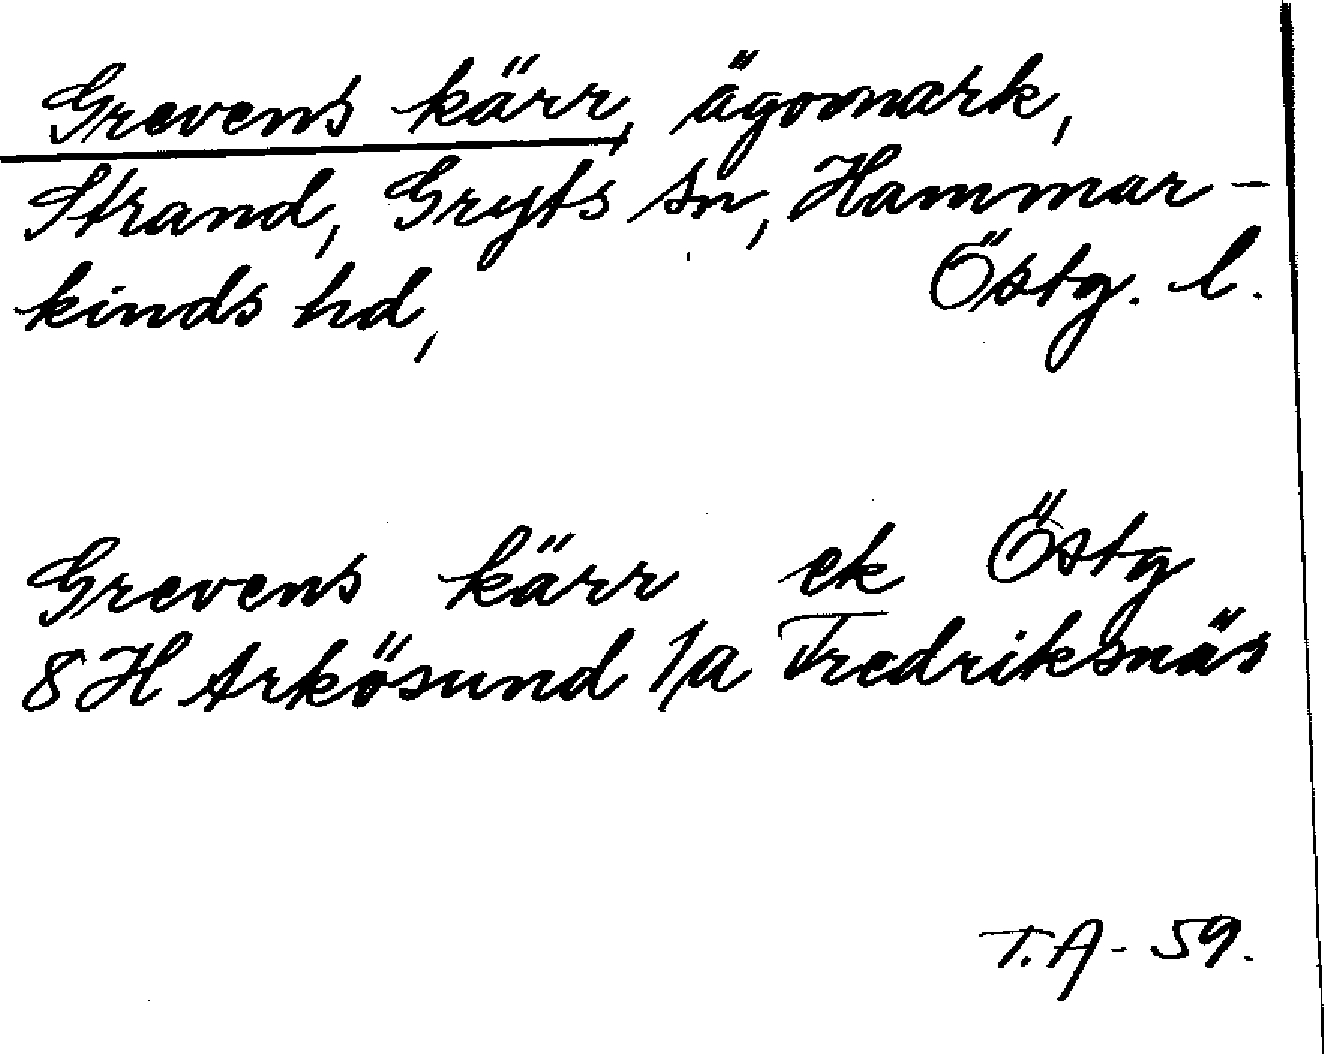 Grevens kärr, ägomark,
Strand, Gryts sn, Hammar-
kinds hd, Östg. l.
Grevens kärr ek Östg
8H Arkösund 1/a Fredriksnäs
T.A- 59.